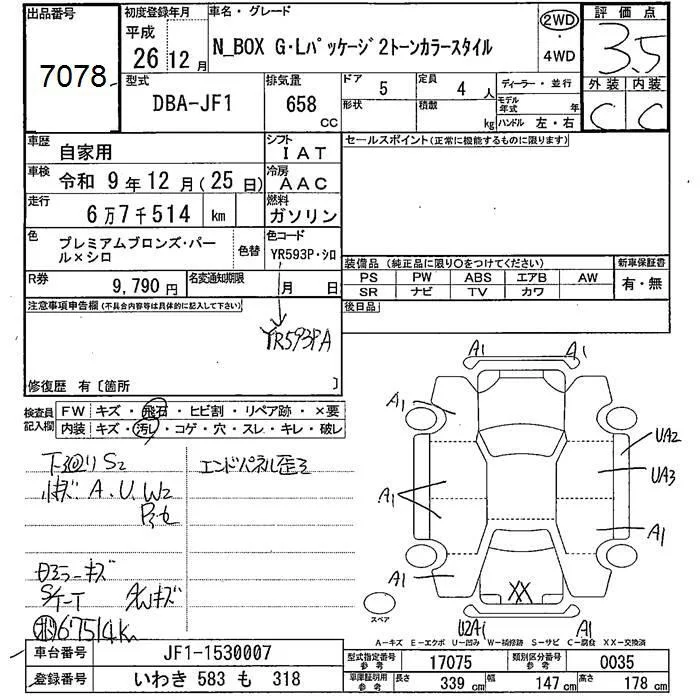 出品番号 初度登録年月 車名・グレード 2WD 評価点
7078 平成 26 12月 N_BOX G・Lパッケージ 2トーンカラースタイル ・ 4WD 3.5
型式 排気量 ドア 5 定員 4 人 ディーラー・並行 外装 内装
DBA-JF1 658 cc 形状 積載 kg モデル年式 年 C C
ハンドル 左・右
車歴 自家用 シフト IAT セールスポイント(正常に機能するものに限ります)
車検 令和 9年12月(25日) 冷房 AAC
走行 6万7千514 km 燃料 ガソリン
色 プレミアムブロンズ・パール×シロ 色替 色コード YR593P・シロ
装備品(純正品に限り○をつけてください) 新車保証書
PS PW ABS エアB AW 有・無
SR ナビ TV カワ
R券 9,790円 名変通知期限 月 日 後日品
注意事項申告欄(不具合内容等は具体的に記入して下さい)
YR593PA
修復歴 有〔箇所 〕
検査員記入欄 FW キズ・飛石・ヒビ割・リペア跡・×要
内装 キズ・汚レ・コゲ・穴・スレ・キレ・破レ
A1 A1
A1
UA2
UA3
A1
A1
A1
XX
U2A1 A1
スペア
S2 エンドパネル歪ミ
小キズ A.U.W2
ドミラーキズ
67514K
A-キズ E-エクボ U-凹み W-補修跡 S-サビ C-腐食 XX-交換済
車台番号 JF1-1530007 型式指定番号 参考 17075 類別区分番号 参考 0035
登録番号 いわき 583 も 318 車庫証明用 参考 長さ 339 cm 幅 147 cm 高さ 178 cm